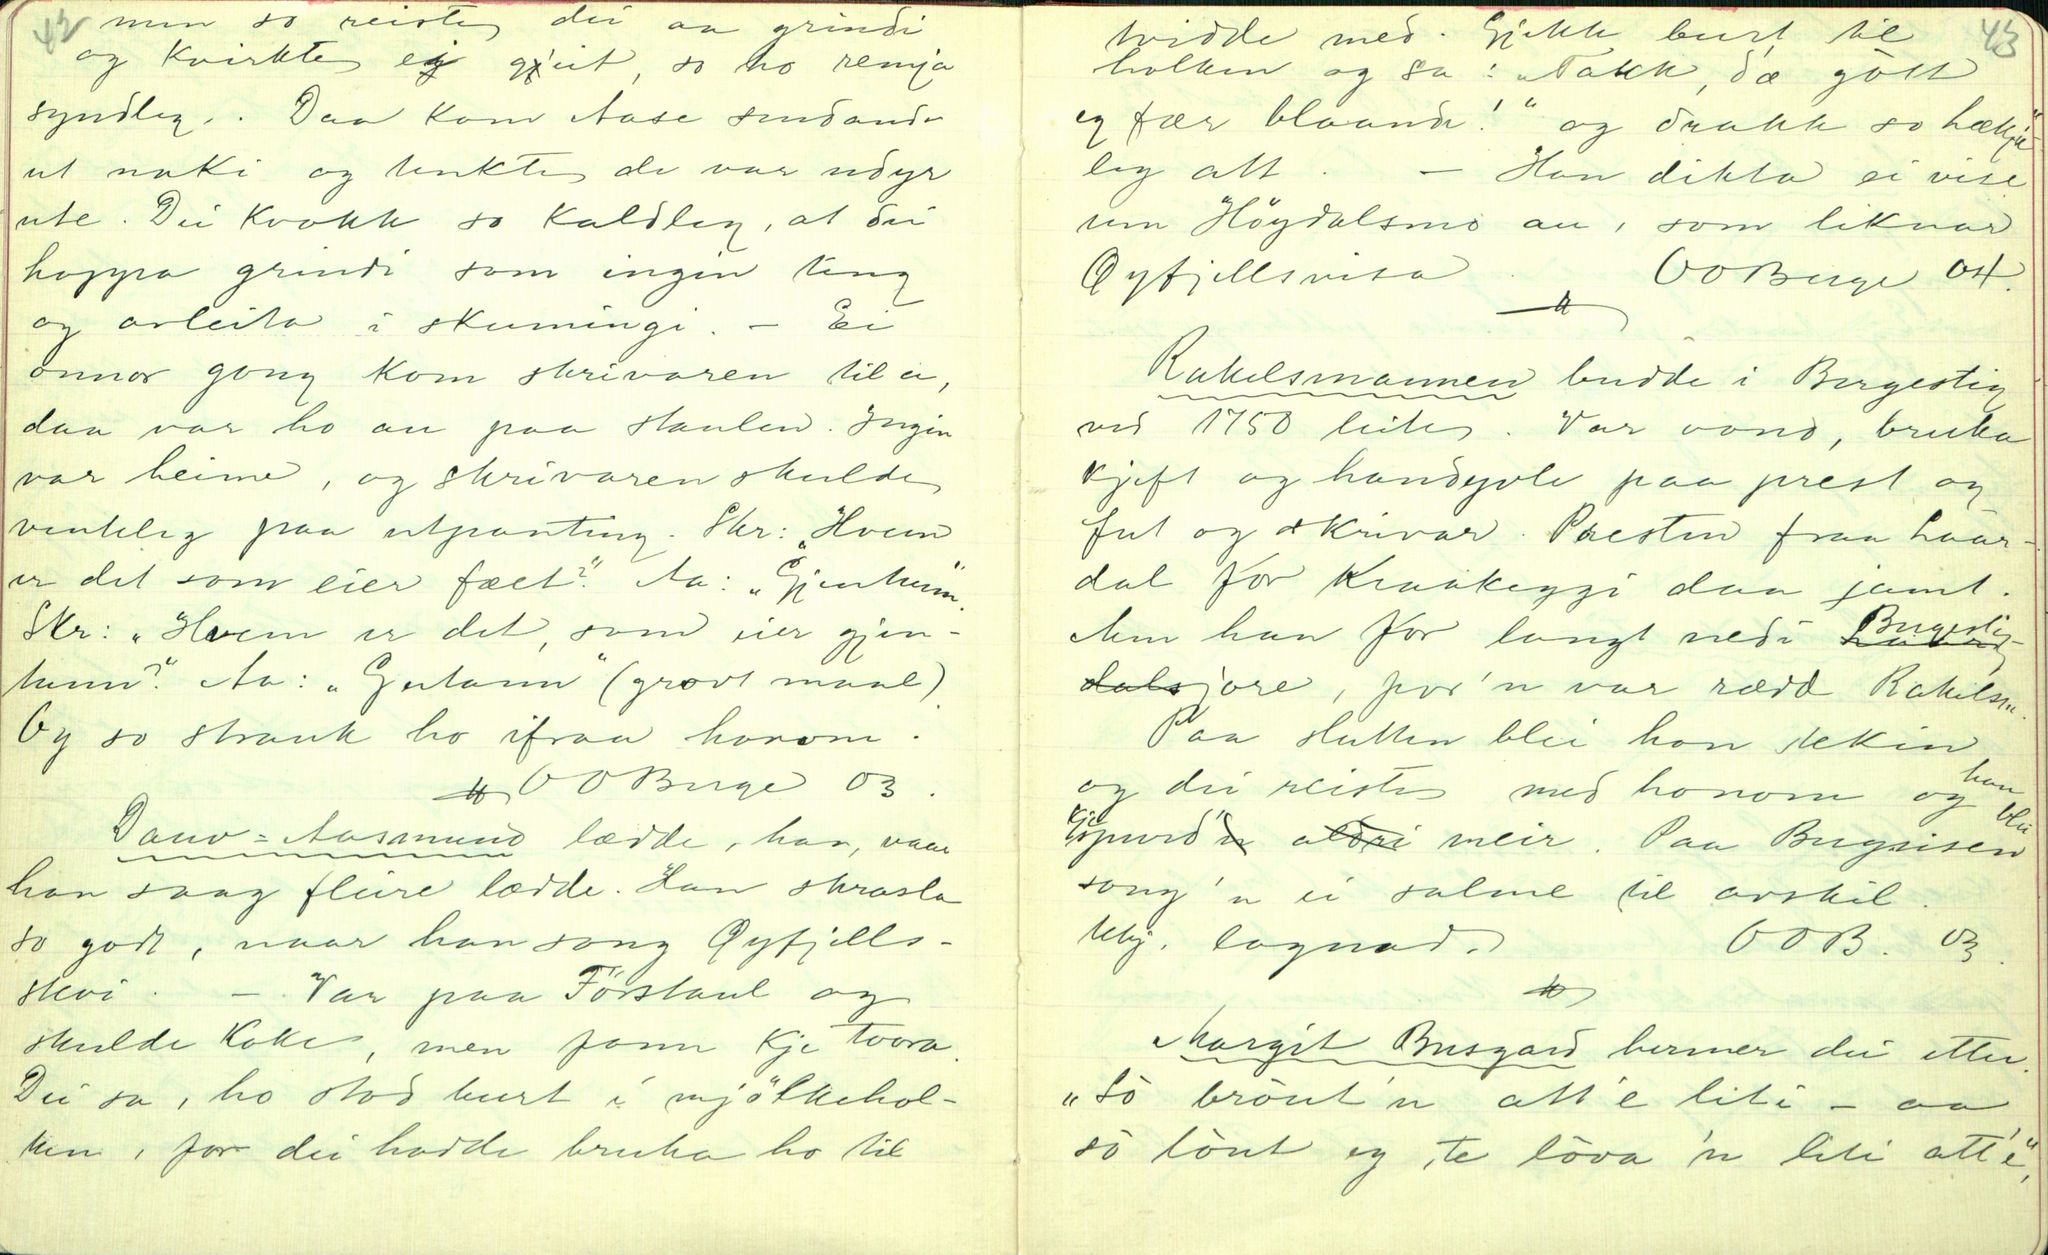 42
men so reiste dei aa grindi
og kvirkte ei gjeit, so ho remja
syndleg. Daa kom Aase sendande
ut naki og tenkte de var udyr
ute. Dei kvakk so kaldleg, at dei
hoppa grindi som ingin ting
og arleita i skumingi. – Ei
onnor gong kom skrivaren til a,
daa var ho au paa staulen. Ingin
var heime, og skrivaren skulde
venteleg paa utpanting. Skr: „Hvem
er det som eier fæet?" Aa: „Gjentunn".
Skr: „Hvem er det, som eier gjen-
tunn?" Aa: „Gutann" (grovt maal)
Og so strauk ho ifraa honom.
OOBerge 03.
Dauv-Aasmund lædde, han, naar
han saag fleire lædde. Han skrasla
so godt, naar han song Øyfjells-
stevi. – Var paa Förstaul og
skulde koke, men fann kje tvora.
Dei sa, ho stod burt i mjölkehol-
ken, for dei hadde bruka ho til
43
tridde med. Gjekk burt til
holken og sa: „Takk, dæ gòtt
eg fær blaande!" og drakk so hækje-
leg att. – Han dikta ei vise
um Höydalsmo au, som liknar
Øyfjellsvisa OOBerge 04.
Rakelsmannen budde i Bergestig
ved 1750 leite. Var vond, bruka
kjeft og handgvle paa prest og
fut og skrivar. Presten fraa Laar-
dal for Kraakeggi daa jamt.
Men han for langt nedi Bergestig-
dalsjore, for'n var rædd Rakelsm.
Paa slutten blei han tekin
og dei reiste med honom og han blei
kje spurd'n aldri meir. Paa Bergsisen
song'n ei salme til avskil.
lagnad. OOB. 03.
Margit Busgard hermer dei etter.
„Sò brònt'n att'e liti – aa
sò lònt eg te lòva 'n liti att'e",